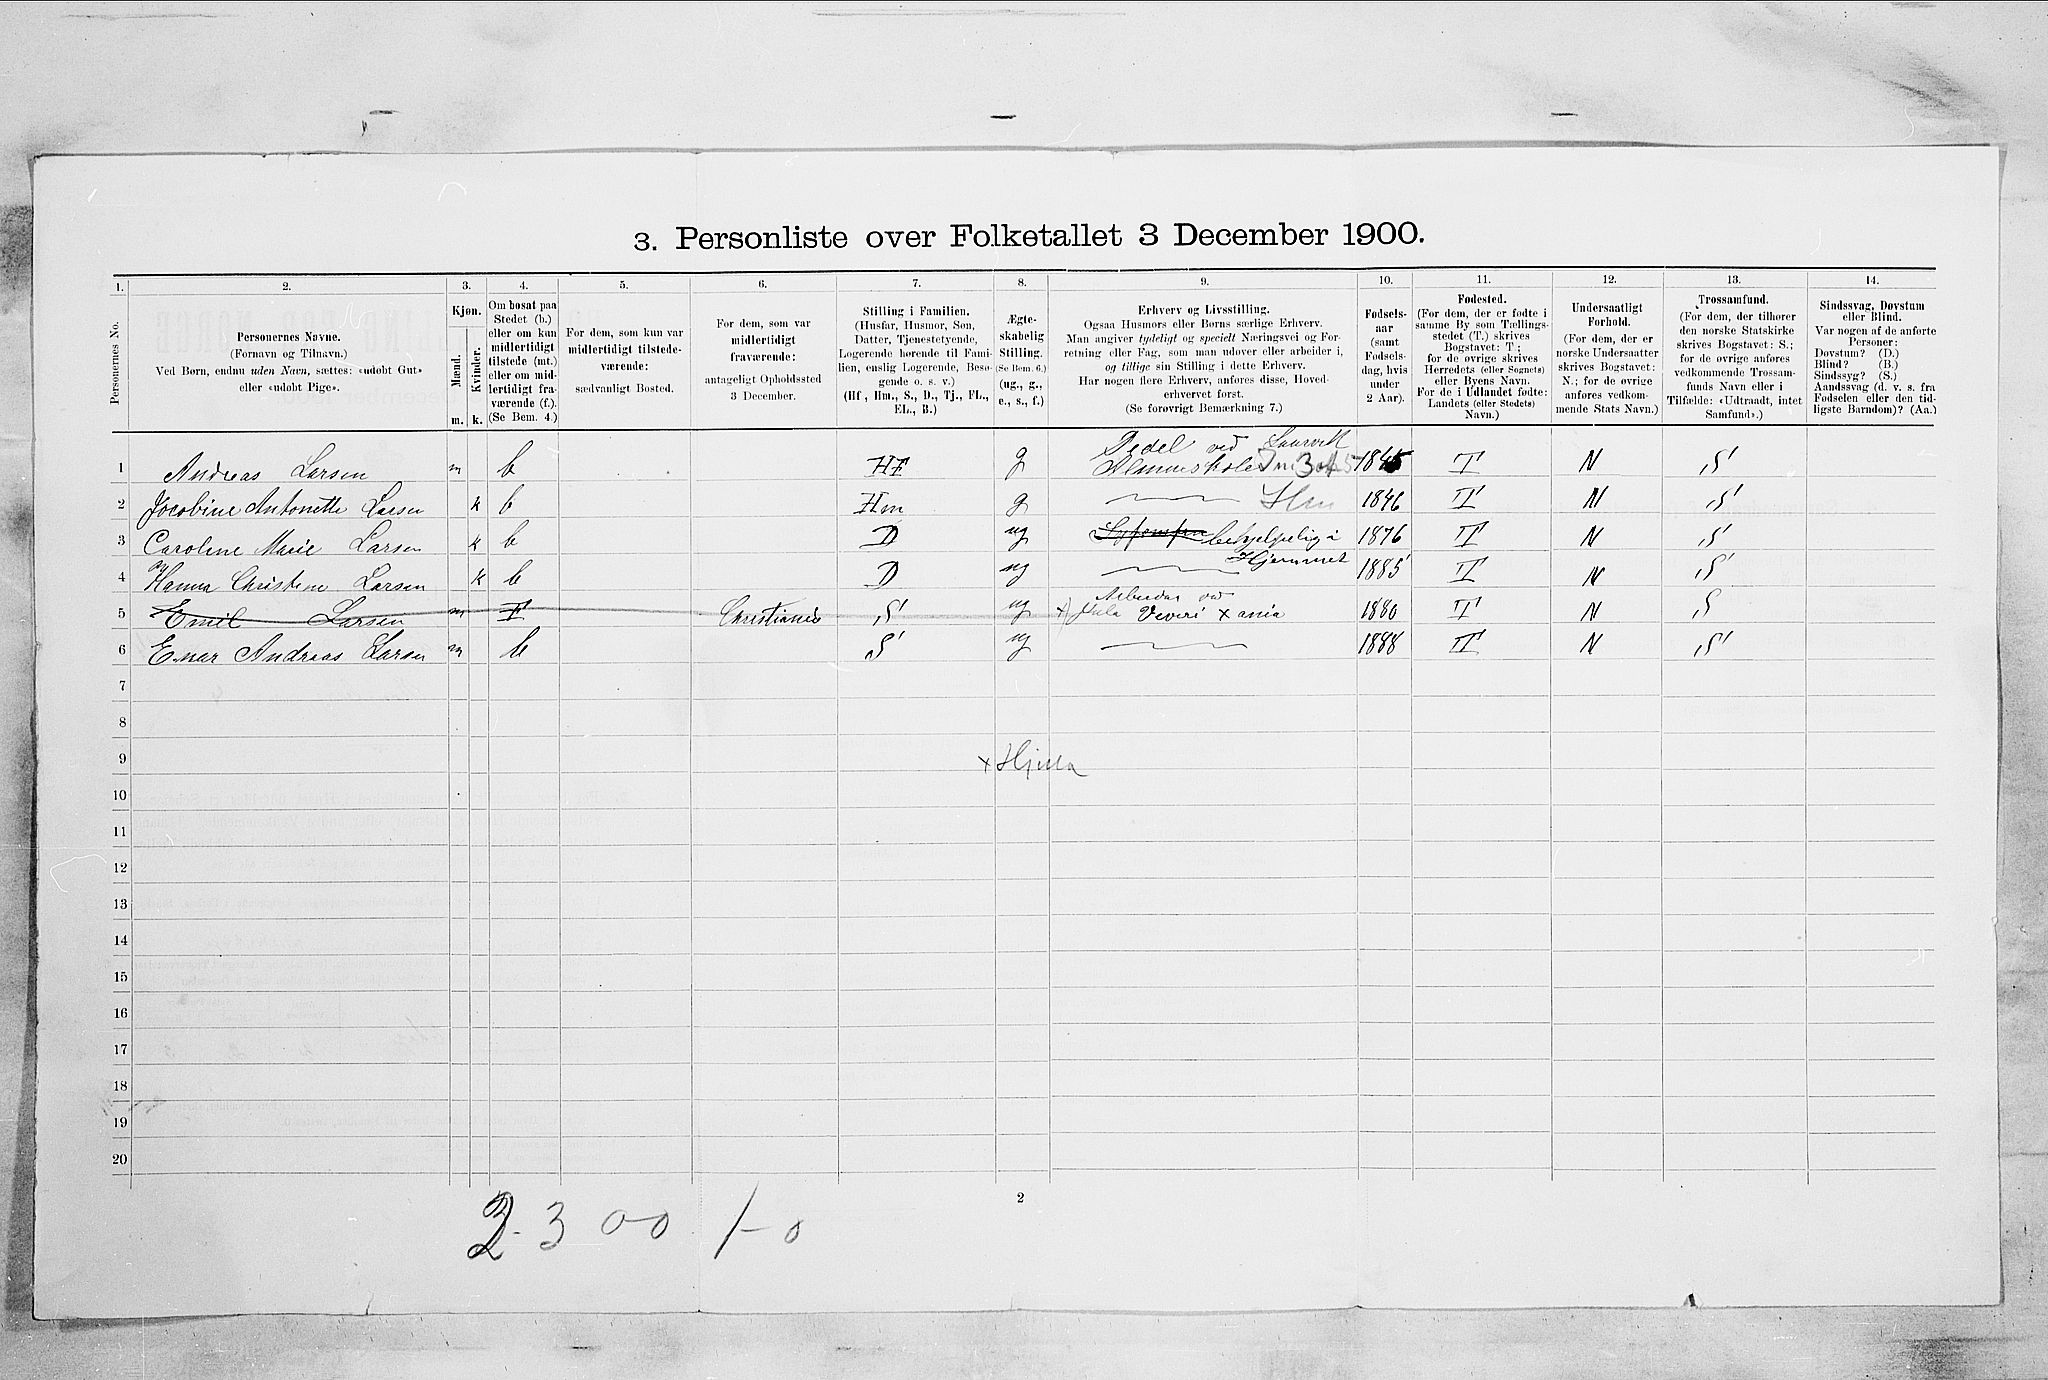 3. Personliste over Folketallet 3 December 1900.
1. 2. 3. 4. 5. 6. 7. 8. 9. 10. 11. 12. 13. 14.
Personernes No.
Personernes Navne.
(Fornavn og Tilnavn.)
Ved Børn, endnu uden Navn, sættes: «udobt Gut»
eller «udobt Pige».
Kjøn.
Mænd.
Kvinder.
m. k.
Om bosat paa
Stedet (b.)
eller om kun
midlertidigt
tilstede (mt.)
eller om mid-
lertidigt fra-
værende (f.).
(Se Bem. 4.)
For dem, som kun var
midlertidigt tilstede-
værende:
sædvanligt Bosted.
For dem, som var
midlertidigt
fraværende:
antageligt Opholdssted
3 December.
Stilling i Familien.
(Husfar, Husmor, Søn,
Datter, Tjenestetyende,
Logerende hørende til Fami-
lien, enslig Logerende, Besø-
gende o. s. v.)
(Hf , Hm., S., D., Tj., FL.,
EL., B.)
Ægte-
skabelig
Stilling.
(Se Bem. 6.)
(ug., g.,
e., s., f.)
Erhverv og Livsstilling.
Ogsaa Husmors eller Børns særlige Erhverv.
Man angiver tydeligt og specielt Næringsvei og For-
retning eller Fag, som man udover eller arbeider i,
og tillige sin Stilling i dette Erhverv.
Har nogen flere Erhverv, anføres disse, Hoved-
erhvervet forst.
(Se forøvrigt Bemærkning 7.)
Fødsels-
aar
(samt
Fødsels-
dag, hvis
under
2 Aar).
Fødested.
(For dem, der er fødte i
samme By som Tællings-
stedet (T.) skrives
Bogstavet: T;
for de øvrige skrives
Herredets (eller Sognets)
eller Byens Navn.
For de i Udlandet fødte:
Landets (eller Stedets)
Navn.)
Undersaatligt
Forhold.
(For dem, der er
norske Undersaatter
skrives Bogstavet:
N.; for de øvrige
anføres vedkom-
mende Stats Navn.)
Trossamfund.
(For dem, der tilhører
den norske Statskirke
skrives Bogstavet: S.;
for de øvrige anføres
vedkommende Trossam-
funds Navn eller i
Tilfælde: «Udtraadt, intet
Samfund».)
Sindssvag, Døvstum
eller Blind.
Var nogen af de anførte
Personer:
Dovstum? (D.)
Blind? (B.)
Sindssyg? (S.)
Aandssvag (d. v. s. fra
Fødselen eller den tid-
ligste Barndom)? (Aa.)
1 Andreas Larsen m b Hf g Pedel ved Laurvik 1845 T N S
2 Jocobine Antonette Larsen k b Hm g Hm 1846 T N S
3 Caroline Marie Larsen k b D ug behjelpelig i 1876 T N S
Hjemmet
4 Hanna Christine Larsen k b D ug 1885 T N S
Arbeider ved
5 Emil Larsen m f Christiania S ug x) Hula Veveri x ania 1880 T N S
6 Enar Andreas Larsen m b S ug 1888 T N S
7
8
9 x Hjula
10
11
12
13
14
15
16
17
18
19
20
2
2-3 0-0 1-0